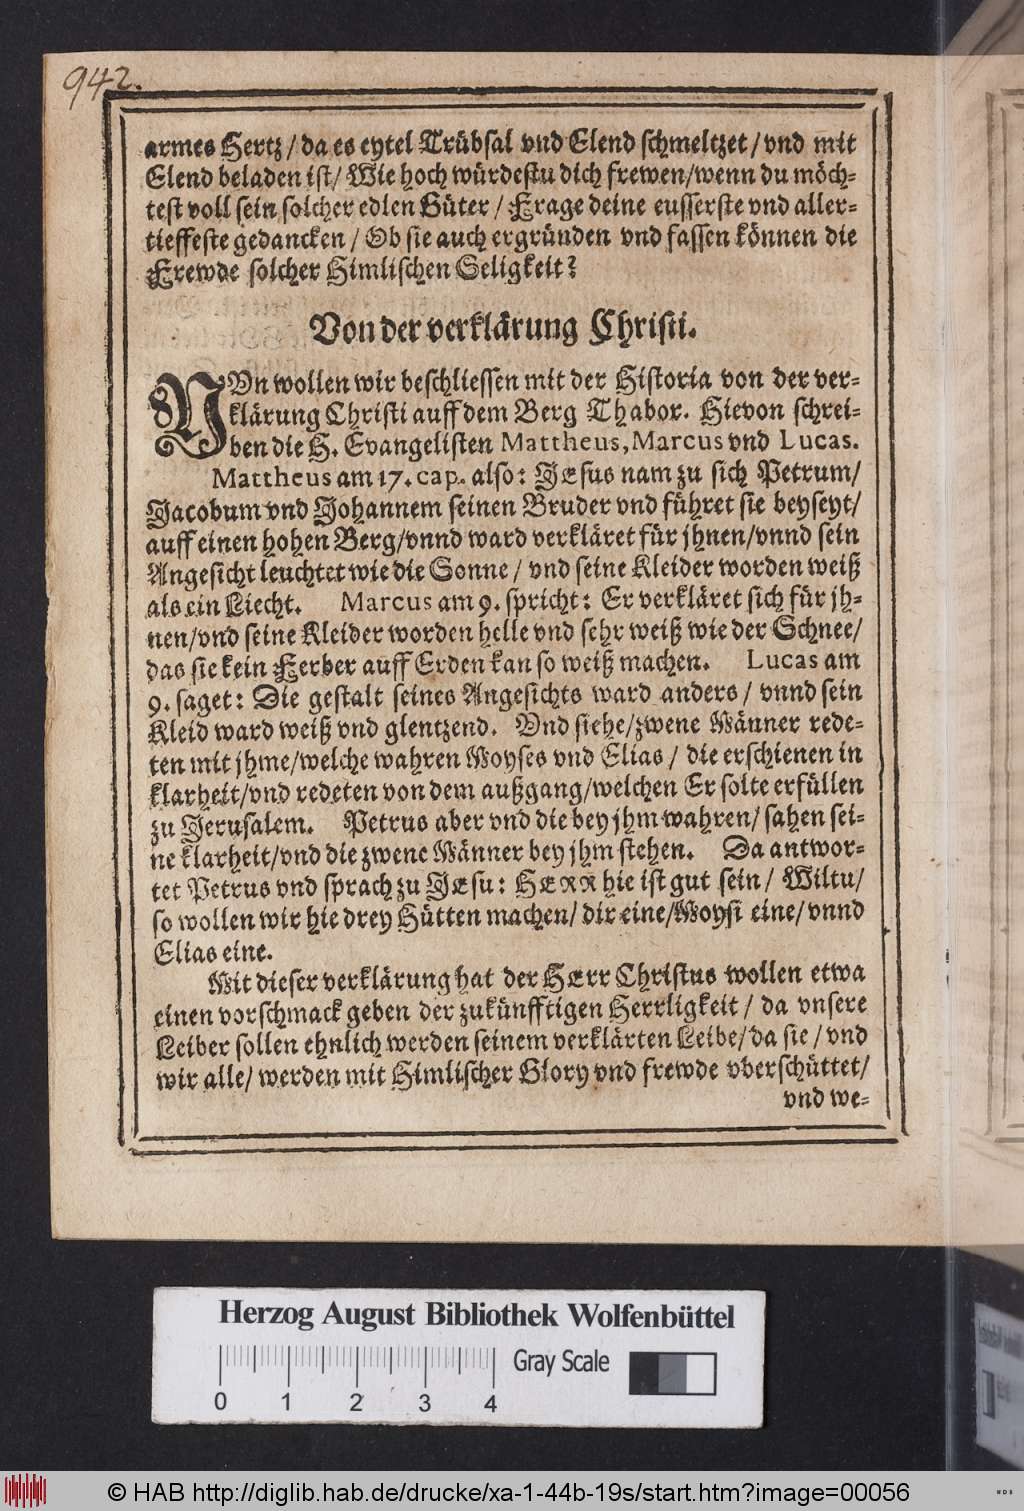 942.
armes Hertz / da es eytel Trübsal vnd Elend schmeltzet / vnd mit
Elend beladen ist / Wie hoch würdestu dich frewen / wenn du möch-
test voll sein solcher edlen Güter / Frage deine eusserste vnd aller-
tieffeste gedancken / Ob sie auch ergründen vnd fassen können die
Frewde solcher Himlischen Seligkeit?
Von der verklärung Christi.
NVn wollen wir beschliessen mit der Historia von der ver-
klärung Christi auff dem Berg Thabor. Hievon schrei-
ben die H. Evangelisten Mattheus, Marcus vnd Lucas.
Mattheus am 17. cap. also: JEsus nam zu sich Petrum /
Jacobum vnd Johannem seinen Bruder vnd führet sie beyseyt /
auff einen hohen Berg / vnnd ward verkläret für jhnen / vnnd sein
Angesicht leuchtet wie die Sonne / vnd seine Kleider worden weiß
als ein Liecht. Marcus am 9. spricht: Er verkläret sich für jh-
nen / vnd seine Kleider worden helle vnd sehr weiß wie der Schnee /
das sie kein Ferber auff Erden kan so weiß machen. Lucas am
9. saget: Die gestalt seines Angesichts ward anders / vnnd sein
Kleid ward weiß vnd glentzend. Vnd siehe / zwene Männer rede-
ten mit jhme / welche wahren Moyses vnd Elias / die erschienen in
klarheit / vnd redeten von dem außgang / welchen Er solte erfüllen
zu Jerusalem. Petrus aber vnd die bey jhm wahren / sahen sei-
ne klarheit / vnd die zwene Männer bey jhm stehen. Da antwor-
tet Petrus vnd sprach zu JEsu: HERR hie ist gut sein / Wiltu /
so wollen wir hie drey Hütten machen / dir eine / Moysi eine / vnnd
Elias eine.
Mit dieser verklärung hat der HErr Christus wollen etwa
einen vorschmack geben der zukünfftigen Herrligkeit / da vnsere
Leiber sollen ehnlich werden seinem verklärten Leibe / da sie / vnd
wir alle / werden mit Himlischer Glory vnd frewde vberschüttet /
vnd we-
Herzog August Bibliothek Wolfenbüttel
Gray Scale
0 1 2 3 4
© HAB http://diglib.hab.de/drucke/xa-1-44b-19s/start.htm?image=00056